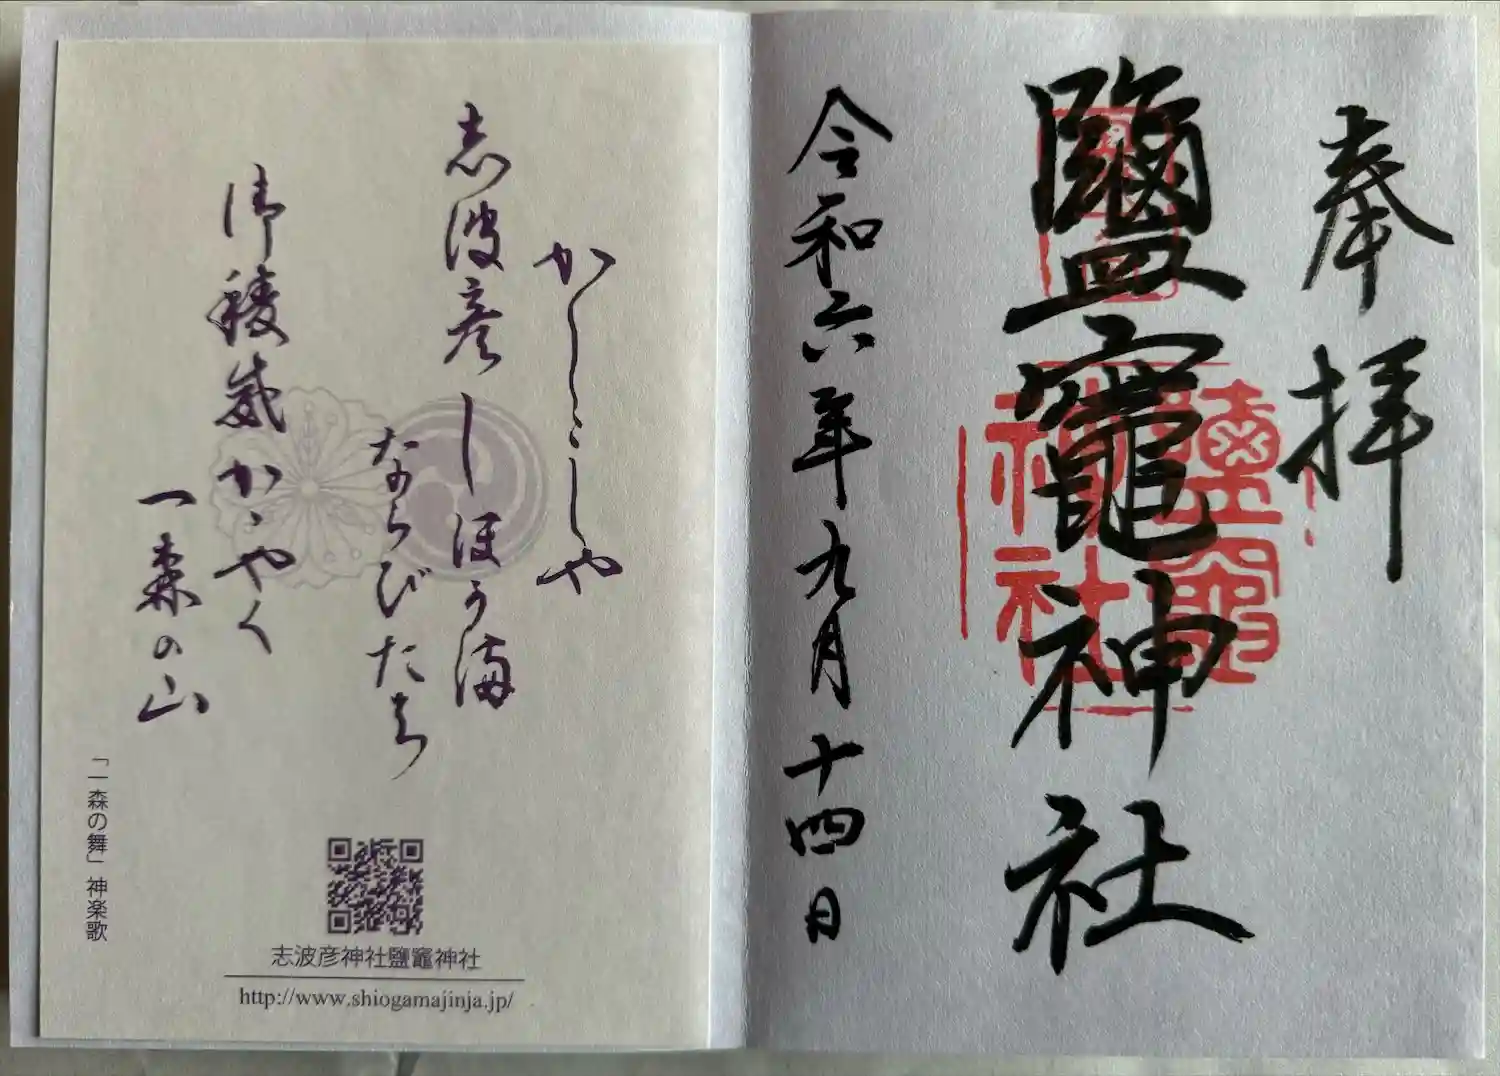 奉拝
鹽竈神社
令和六年九月十四日
鹽竈
神社
かしこしや
志波彦しほうま
ならびたち
御稜威かゞやく
一森の山
「一森の舞」神楽歌
志波彦神社鹽竈神社
http://www.shiogamajinja.jp/